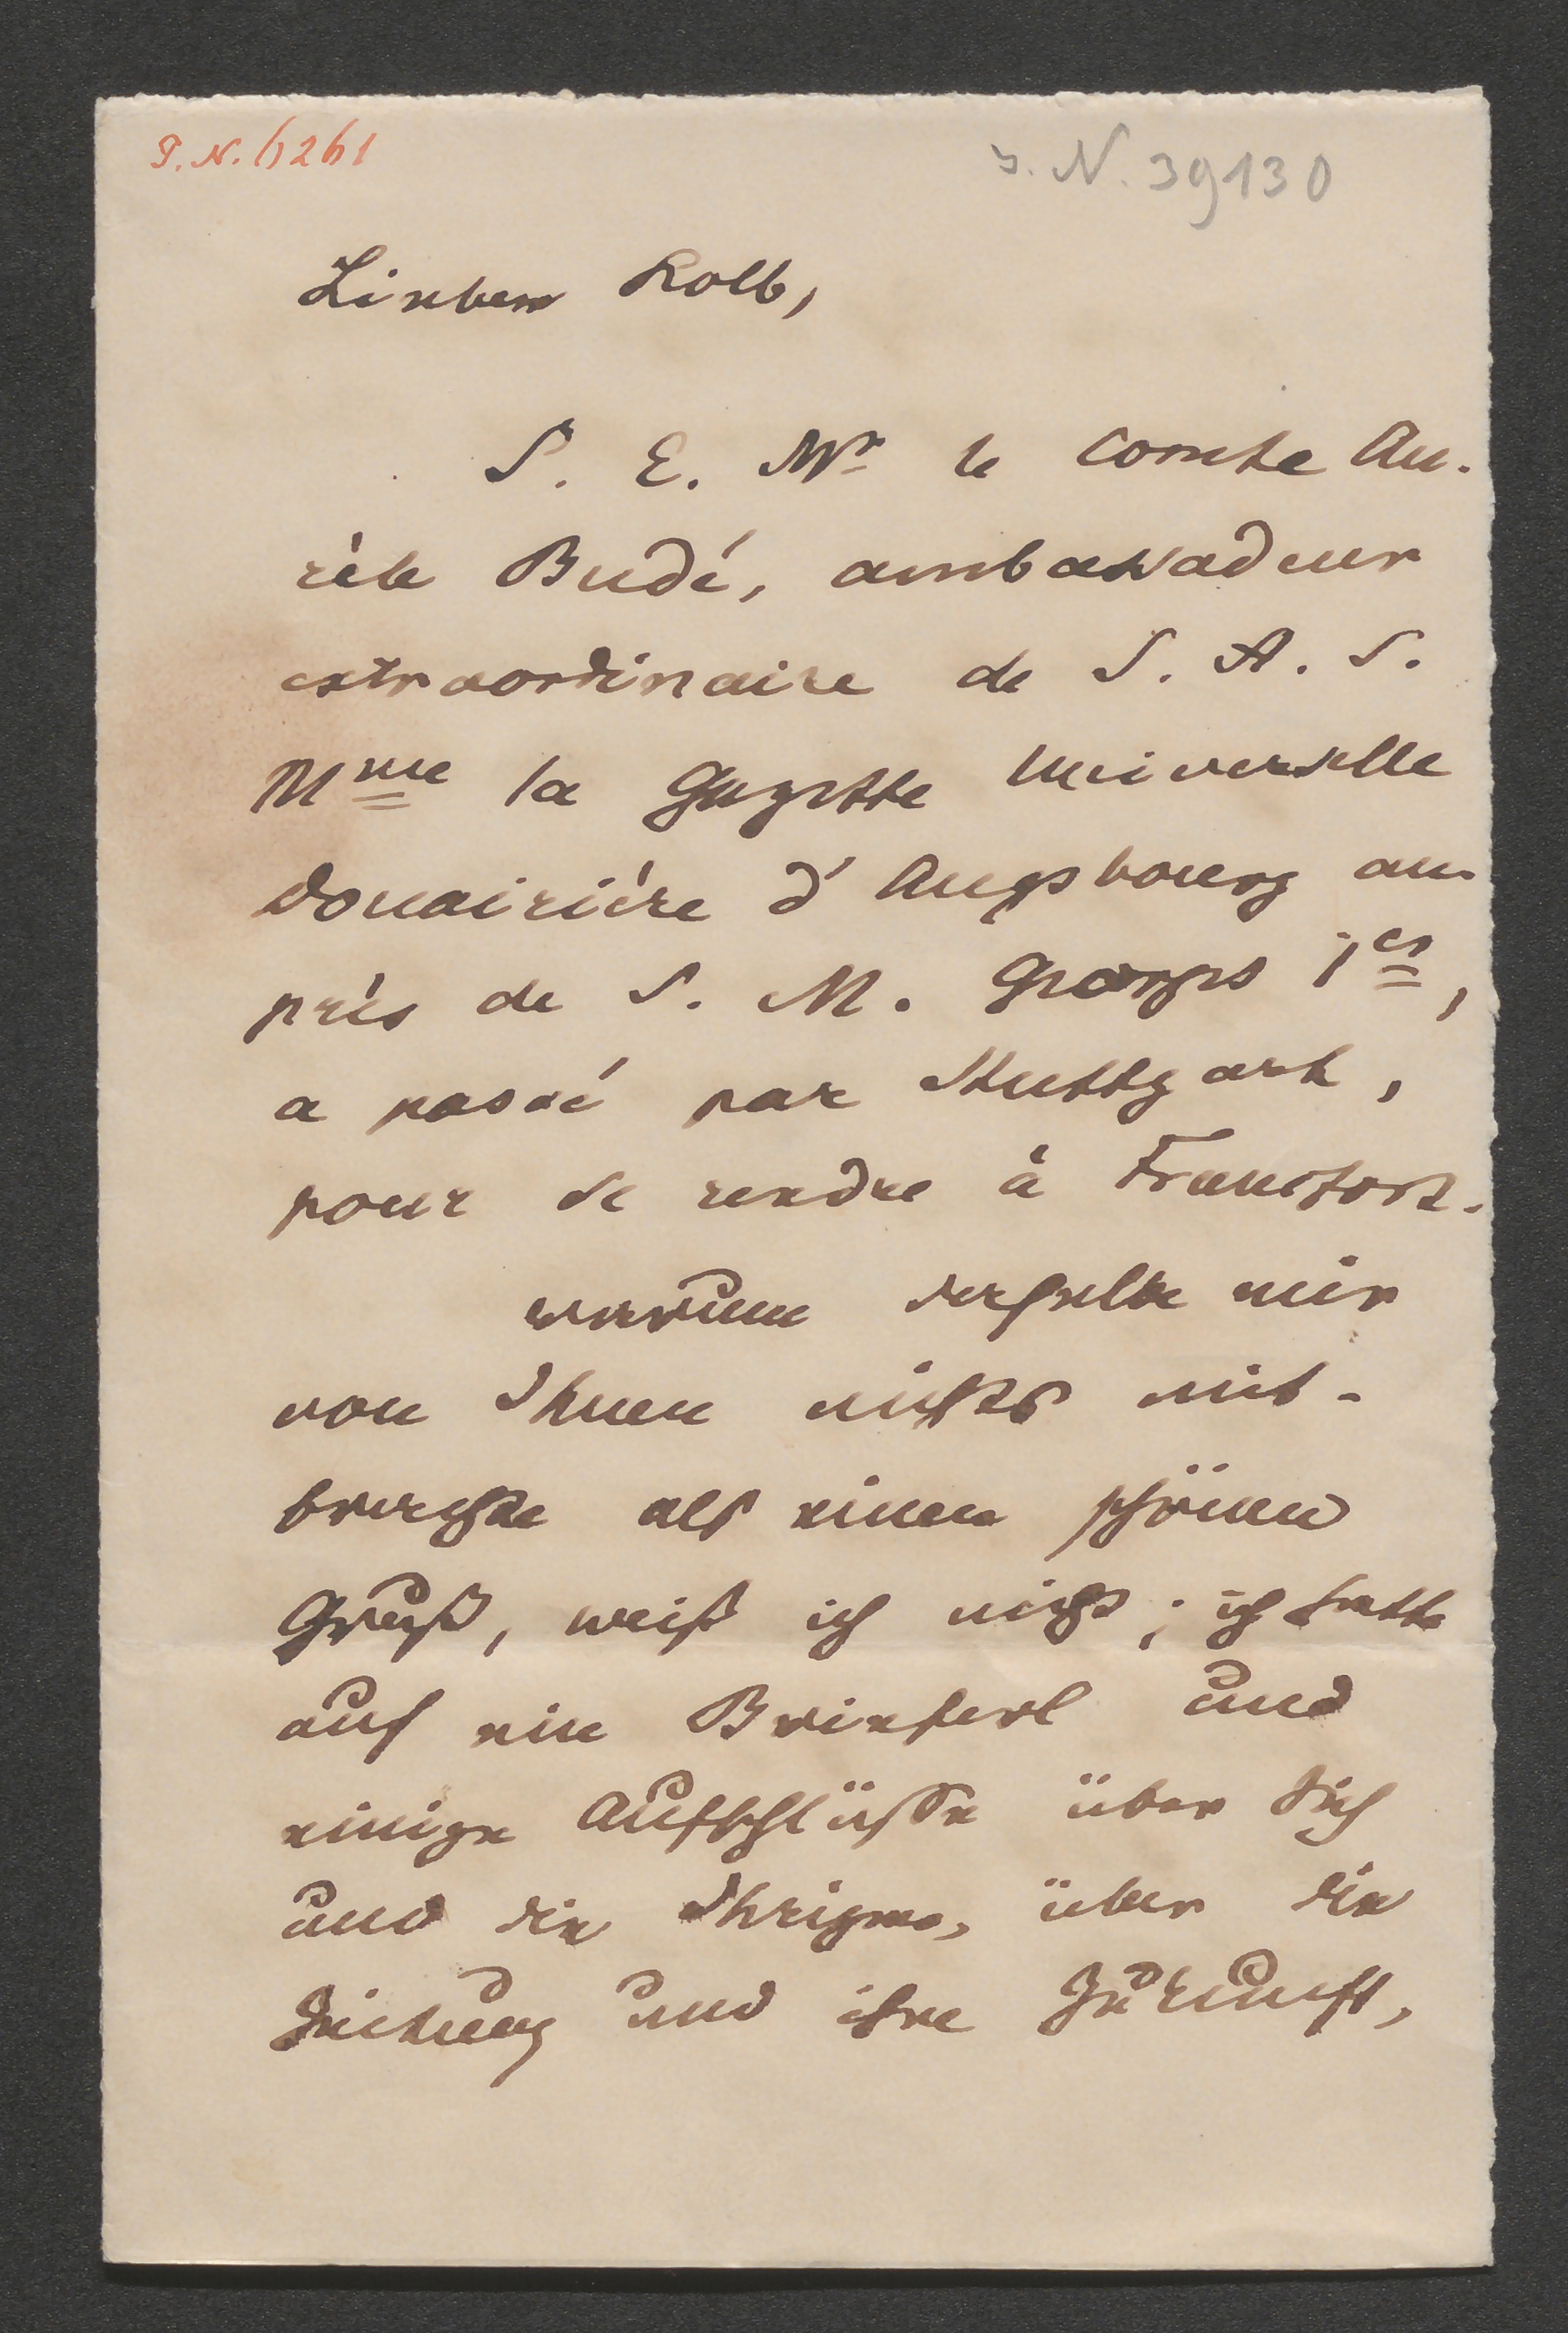 I. N. 6261
I. N. 39130
Lieber Kolb,
S. E. Mr le comte Au-
rèle Budé, ambassadeur
extraordinaire de S. A. S.
Mme la Gazette Universelle
douairière d'Augsbourg au-
près de S. M. Georges 1er,
a passé par Stuttgart,
pour se rendre à Francfort.
warum derselbe mir
von Ihnen nichts mit-
brachte als einen schönen
Gruß, weiß ich nicht; ich hatte
auf ein Brieferl und
einige Aufschlüsse über Sich
und die Ihrigen, über die
Zeitung und ihre Zukunft,